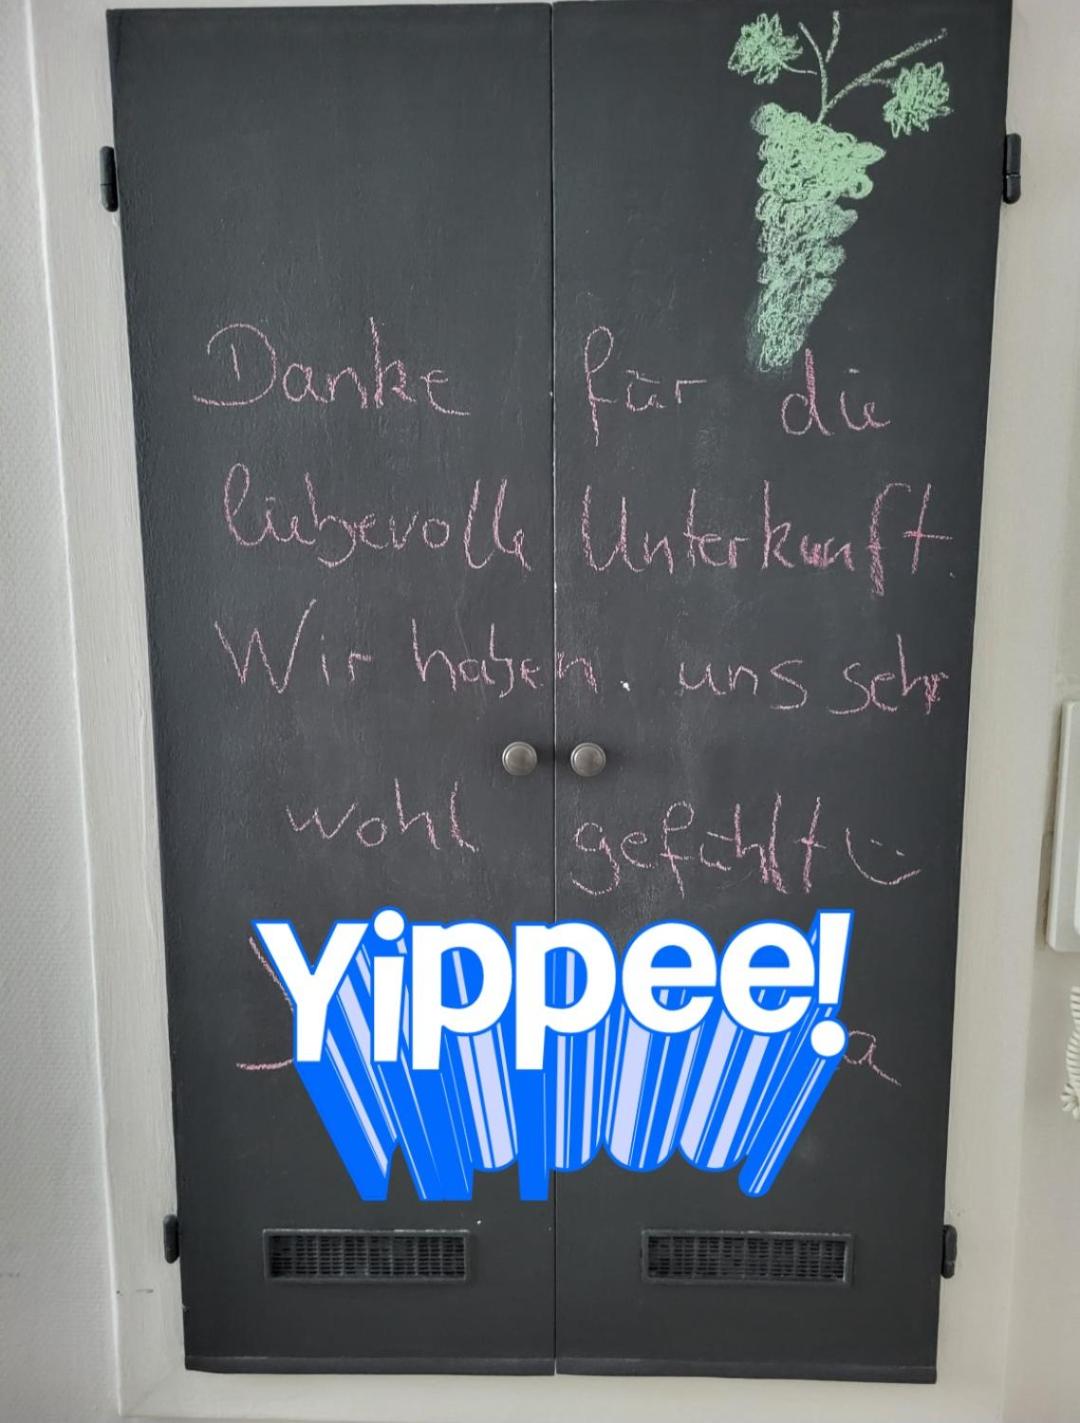 Danke für die
liebevolle Unterkunft.
Wir haben uns sehr
wohl gefühlt :)
Yippee!